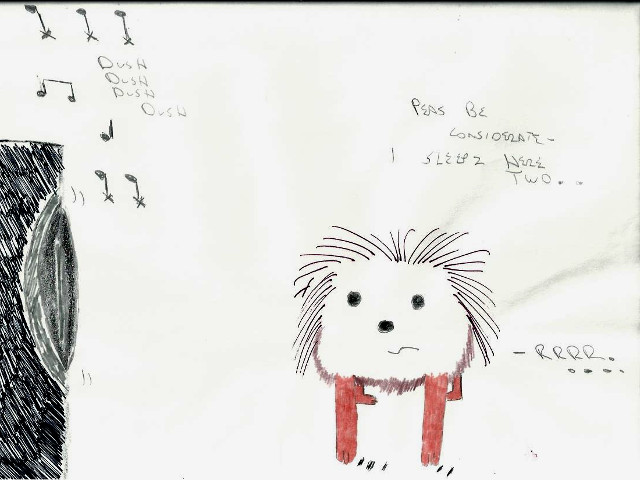 DUSH
DUSH
DUSH
DUSH
PEAS BE
CONSIDERATE-
I SLEEPZ HERE
TWO...
- RRRR.
....